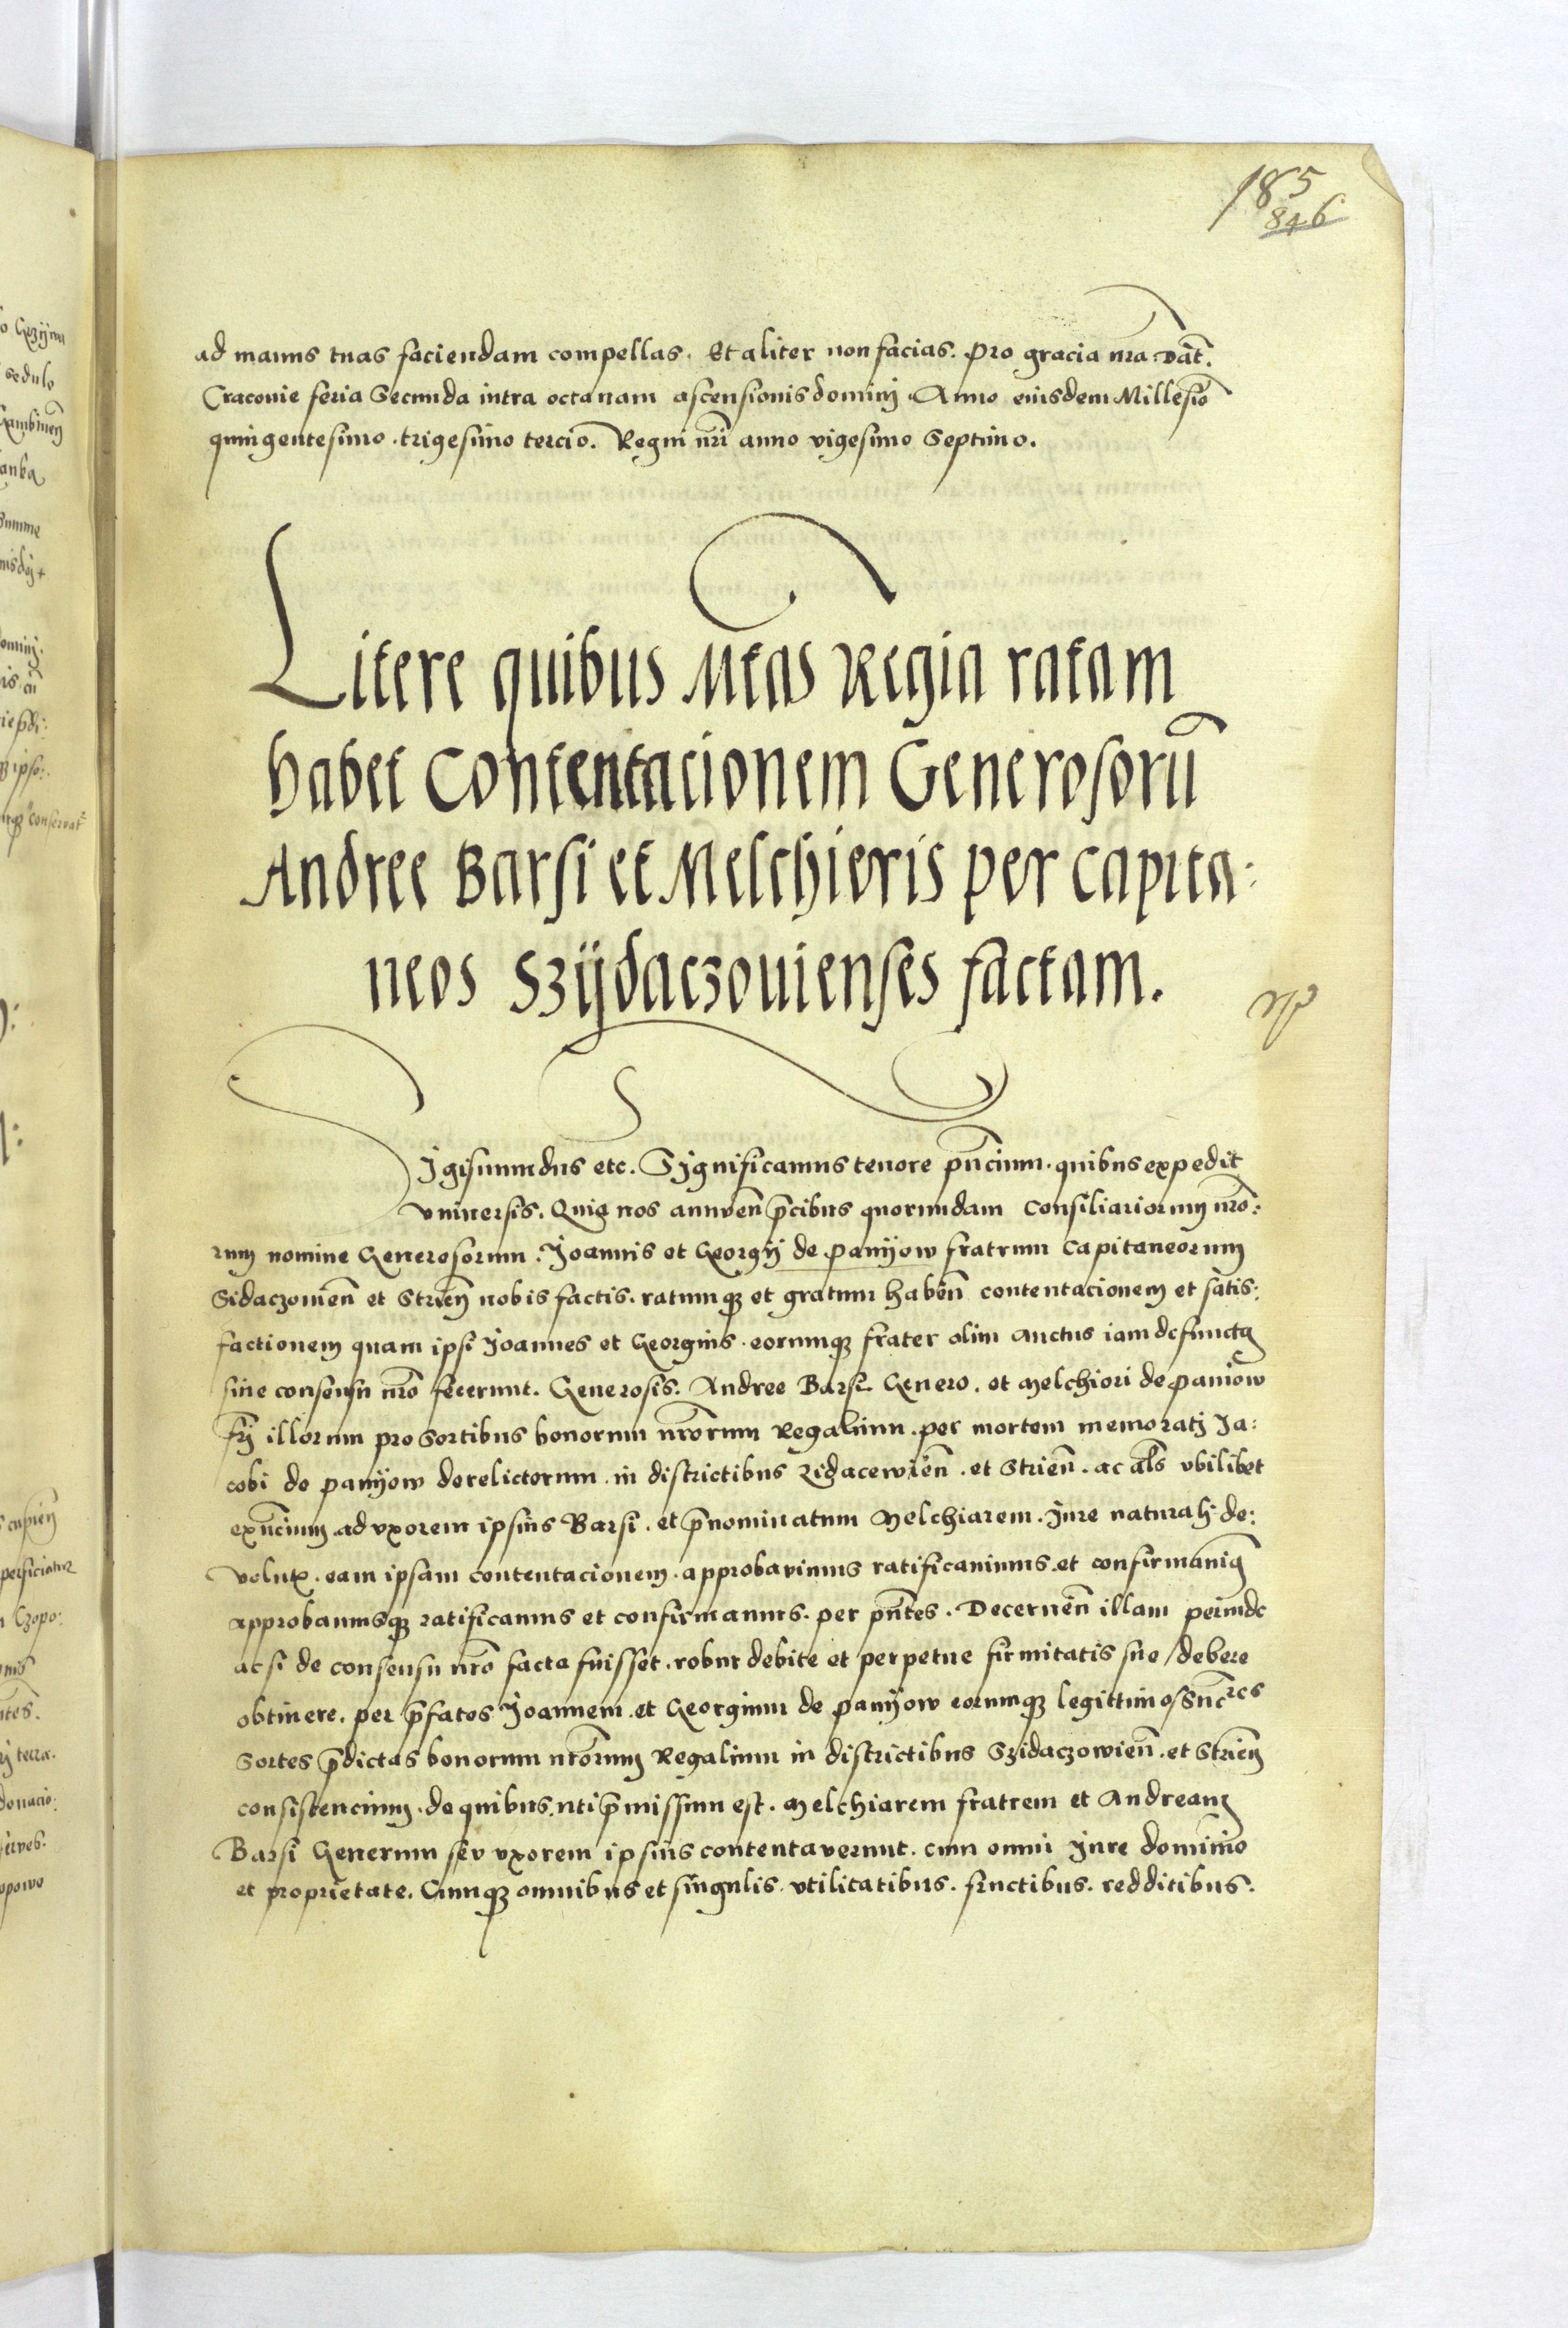 185
846
ad manus tuas faciendam compellas. Et aliter non facias. Pro gracia nr̃a. Dat̃.
Cracouie feria Secunda intra octauam ascensionis dominj. Anno eiusdem Millesiõ
quingentesimo. trigesimo tercio. Regni nr̃i anno vigesimo Septimo.
Litere quibus Mtas Regia ratam
habet Contentacionem Generosorũ
Andree Barsi et Melchioris per Capita:
neos Szÿdaczouienses factam.
Sigismundus etc. Significamus tenore pñcium. quibus expedit
vniuersis. Quia nos annueñ p̃cibus quorundam Consiliariorum nr̃o:
rum nomine Generosorum. Joannis et Georgÿ de Panÿow fratrum Capitaneorum
Sidaczouieñ et Strieñ nobis factis. ratumqꝫ et gratum habeñ contentacionem et satis:
factionem quam ipsi Joannes et Georgius. eorumqꝫ frater olim Auctus iam defunctꝰ
sine consensu nr̃o fecerunt. Generosis. Andree Barsi Genero. et Melchiori de Paniow
fr̃i illorum pro Sortibus bonorum nr̃orum Regalium. per mortem memoratj Ja:
cobi de Panÿow derelictorum. in districtibus Zidacewieñ. et Strieñ. ac al̃s vbilibet
exñcium ad vxorem ipsius Barsi. et p̃nominatum Melchiarem. Jure naturalj de:
volutꝭ. eam ipsam contentacionem. approbauimus ratificauimus et confirmauimꝰ
approbamusqꝫ ratificamus et confirmamus. per pñtes. Decerneñ illam perinde
ac si de consensu nr̃o facta fuisset. robur debite et perpetue firmitatis sue / debere
obtinere. per p̃fatos Joannem. et Georgium de Panÿow eorumqꝫ legittimos Succ̃res
Sortes p̃dictas bonorum nr̃orum Regalium in districtibus Szidaczowieñ. et Strieñ
consistencium. de quibus. uti p̃missum est. Melchiarem fratrem et Andream
Barsi Generum seu vxorem ipsius contentauerunt. cum omni Jure dominio
et proprietate. Cumqꝫ omnibus et singulis. vtilitatibus. fructibus. redditibus.